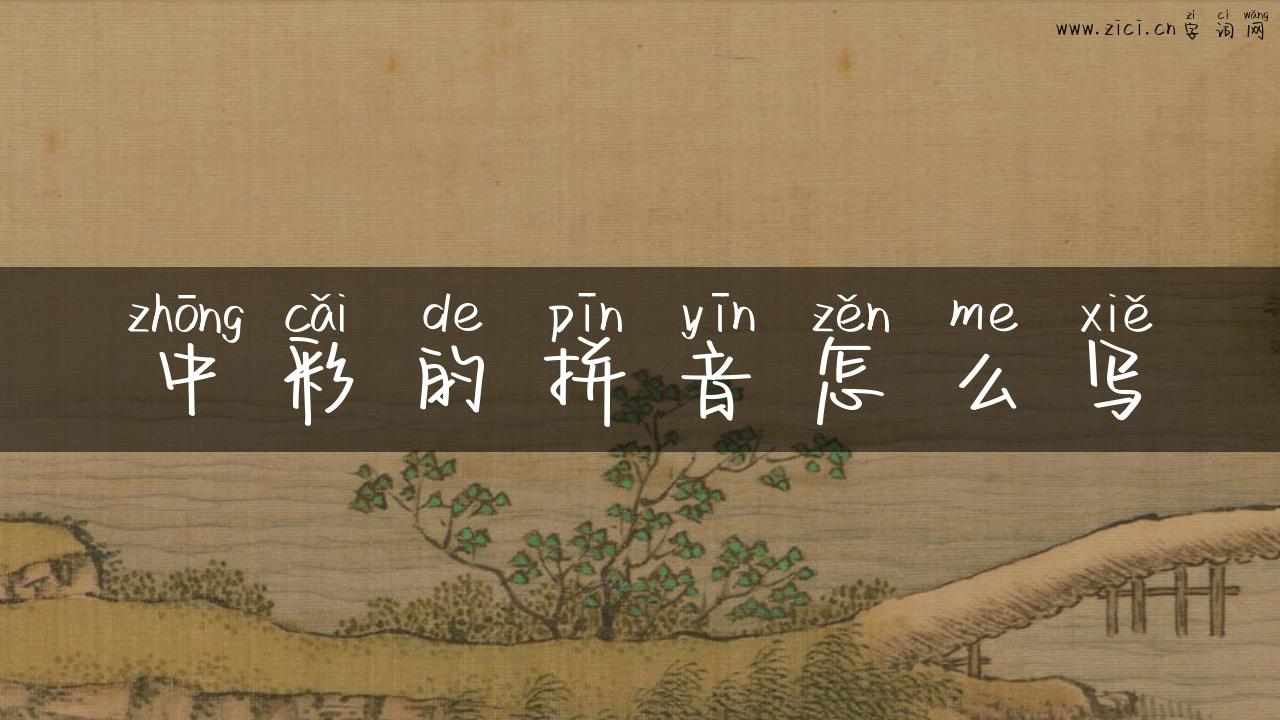 zì cí wǎng
www.zici.cn 字词网
zhōng cǎi de pīn yīn zěn me xiě
中彩的拼音怎么写